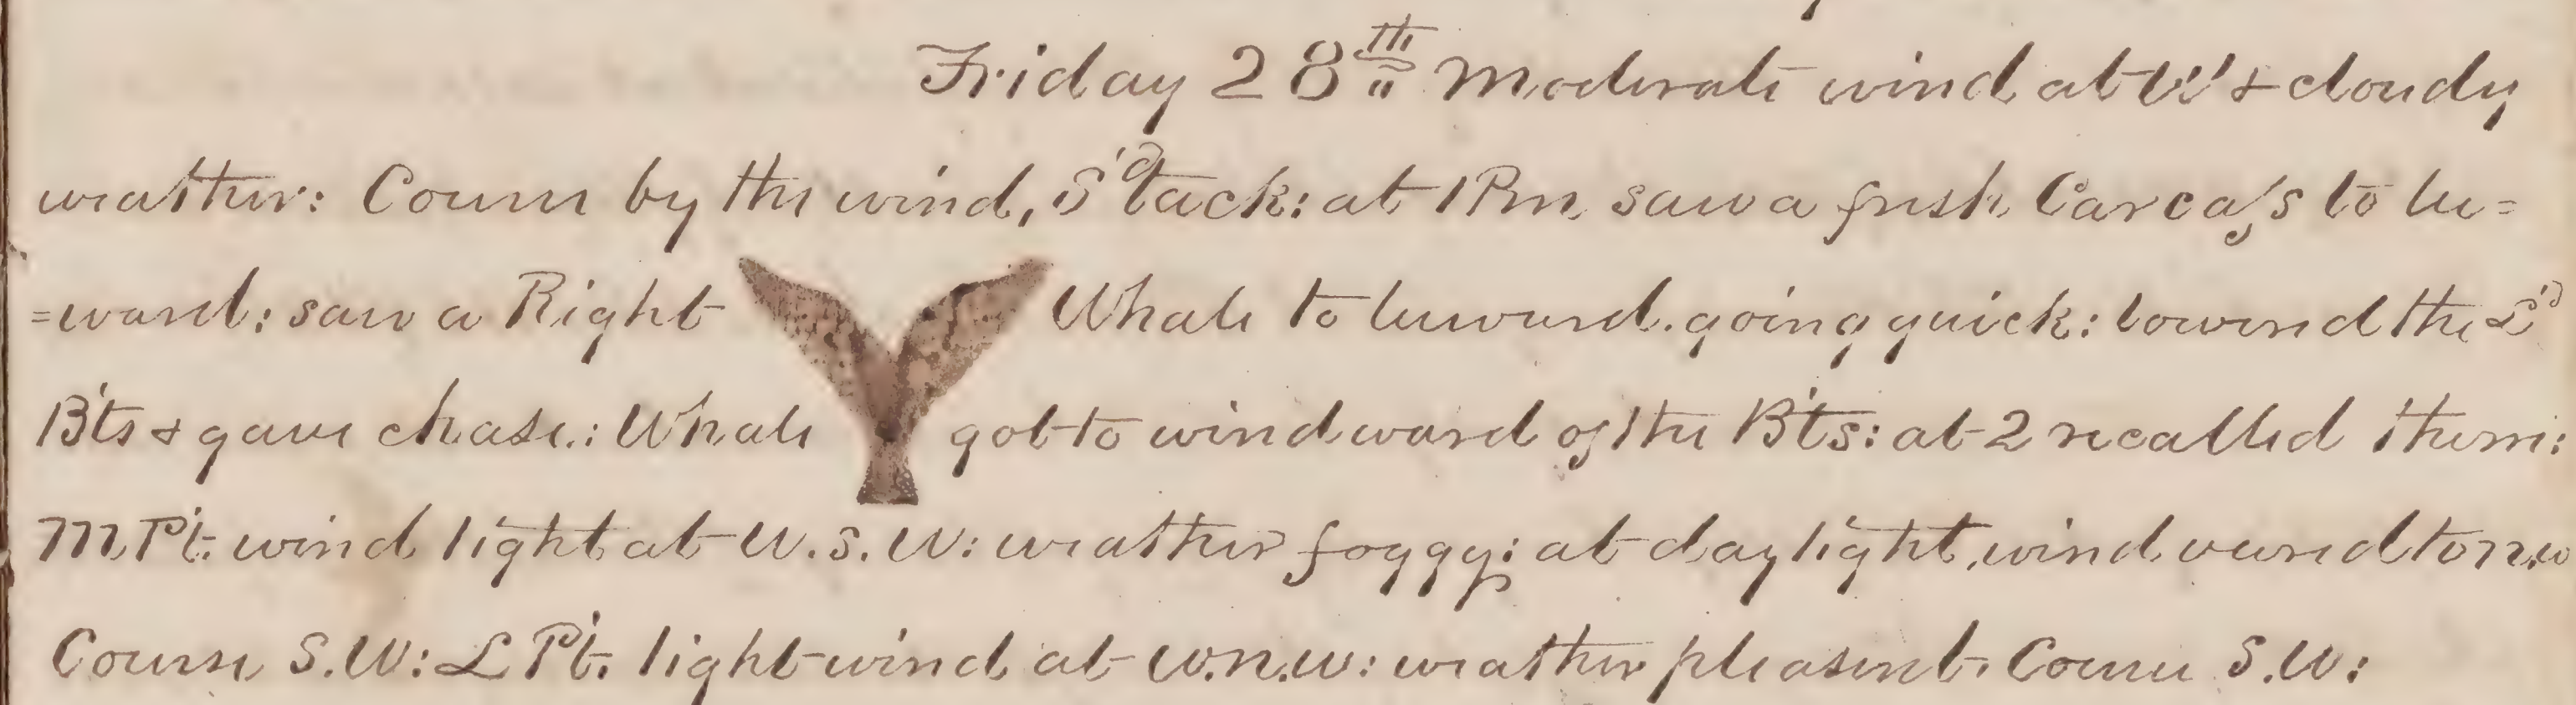 Friday 28th Moderate wind at W & cloudy
weather: Course by the wind, S'd tack: at 1 Pm saw a fresh Carcass to lee=
=ward: saw a Right Whale to leeward. going quick: lowered the L'd
B'ts & gave chase.: Whale got to windward of the B'ts: at 2 recalled them:
M P't. wind light at W.S.W: weather foggy: at daylight, wind veered to N.W
Course S.W: L P't. light wind at W.N.W: weather pleasent. Course S.W: